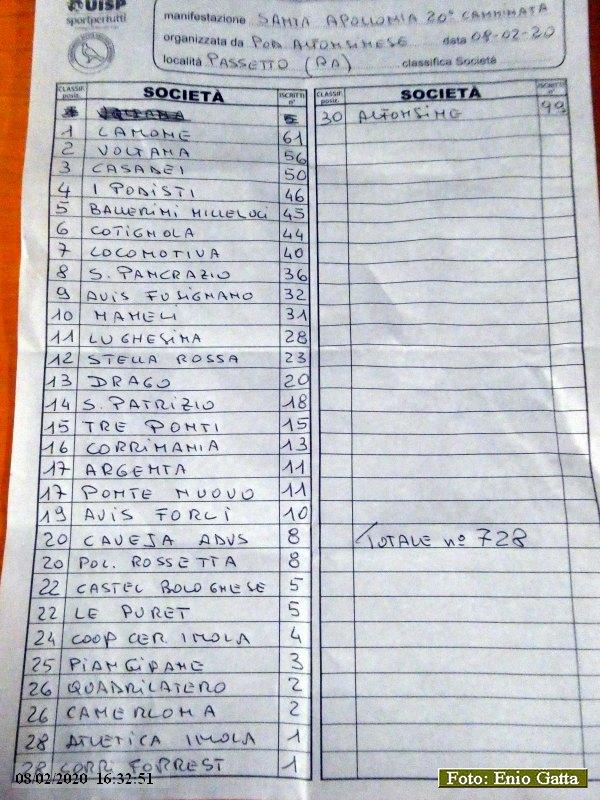 UISP
sportpertutti
manifestazione SANTA APOLLONIA 20° CAMMINATA
organizzata da POD ALFONSINESE data 08-02-20
località PASSETTO (RA) classifica Società
CLASSIF. posiz. SOCIETÀ ISCRITTI n°
1 LAMONE 61
2 VOLTANA 56
3 CASADEI 50
4 I PODISTI 46
5 BALLERINI MILLELUCI 45
6 COTIGNOLA 44
7 LOCOMOTIVA 40
8 S. PANCRAZIO 36
9 AVIS FUSIGNANO 32
10 MAMELI 31
11 LUGHESINA 28
12 STELLA ROSSA 23
13 DRAGO 20
14 S. PATRIZIO 18
15 TRE PONTI 15
16 CORRIMANIA 13
17 ARGENTA 11
17 PONTE NUOVO 11
19 AVIS FORLÌ 10
20 CAVEJA ADVS 8
20 POL. ROSSETTA 8
22 CASTEL BOLOGNESE 5
22 LE PURET 5
24 COOP CER. IMOLA 4
25 PIANGIPANE 3
26 QUADRILATERO 2
26 CAMERLONA 2
28 ATLETICA IMOLA 1
28 CORRI FORREST 1
CLASSIF. posiz. SOCIETÀ ISCRITTI n°
30 ALFONSINE 99
TOTALE n° 728
08/02/2020 16:32:51
Foto: Enio Gatta